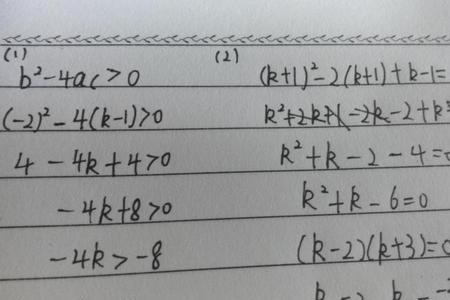 (1)
b²-4ac>0
(-2)²-4(k-1)>0
4-4k+4>0
-4k+8>0
-4k>-8
(2)
(k+1)²-2(k+1)+k-1=
k²+2k+1-2k-2+k
k²+k-2-4=0
k²+k-6=0
(k-2)(k+3)=0